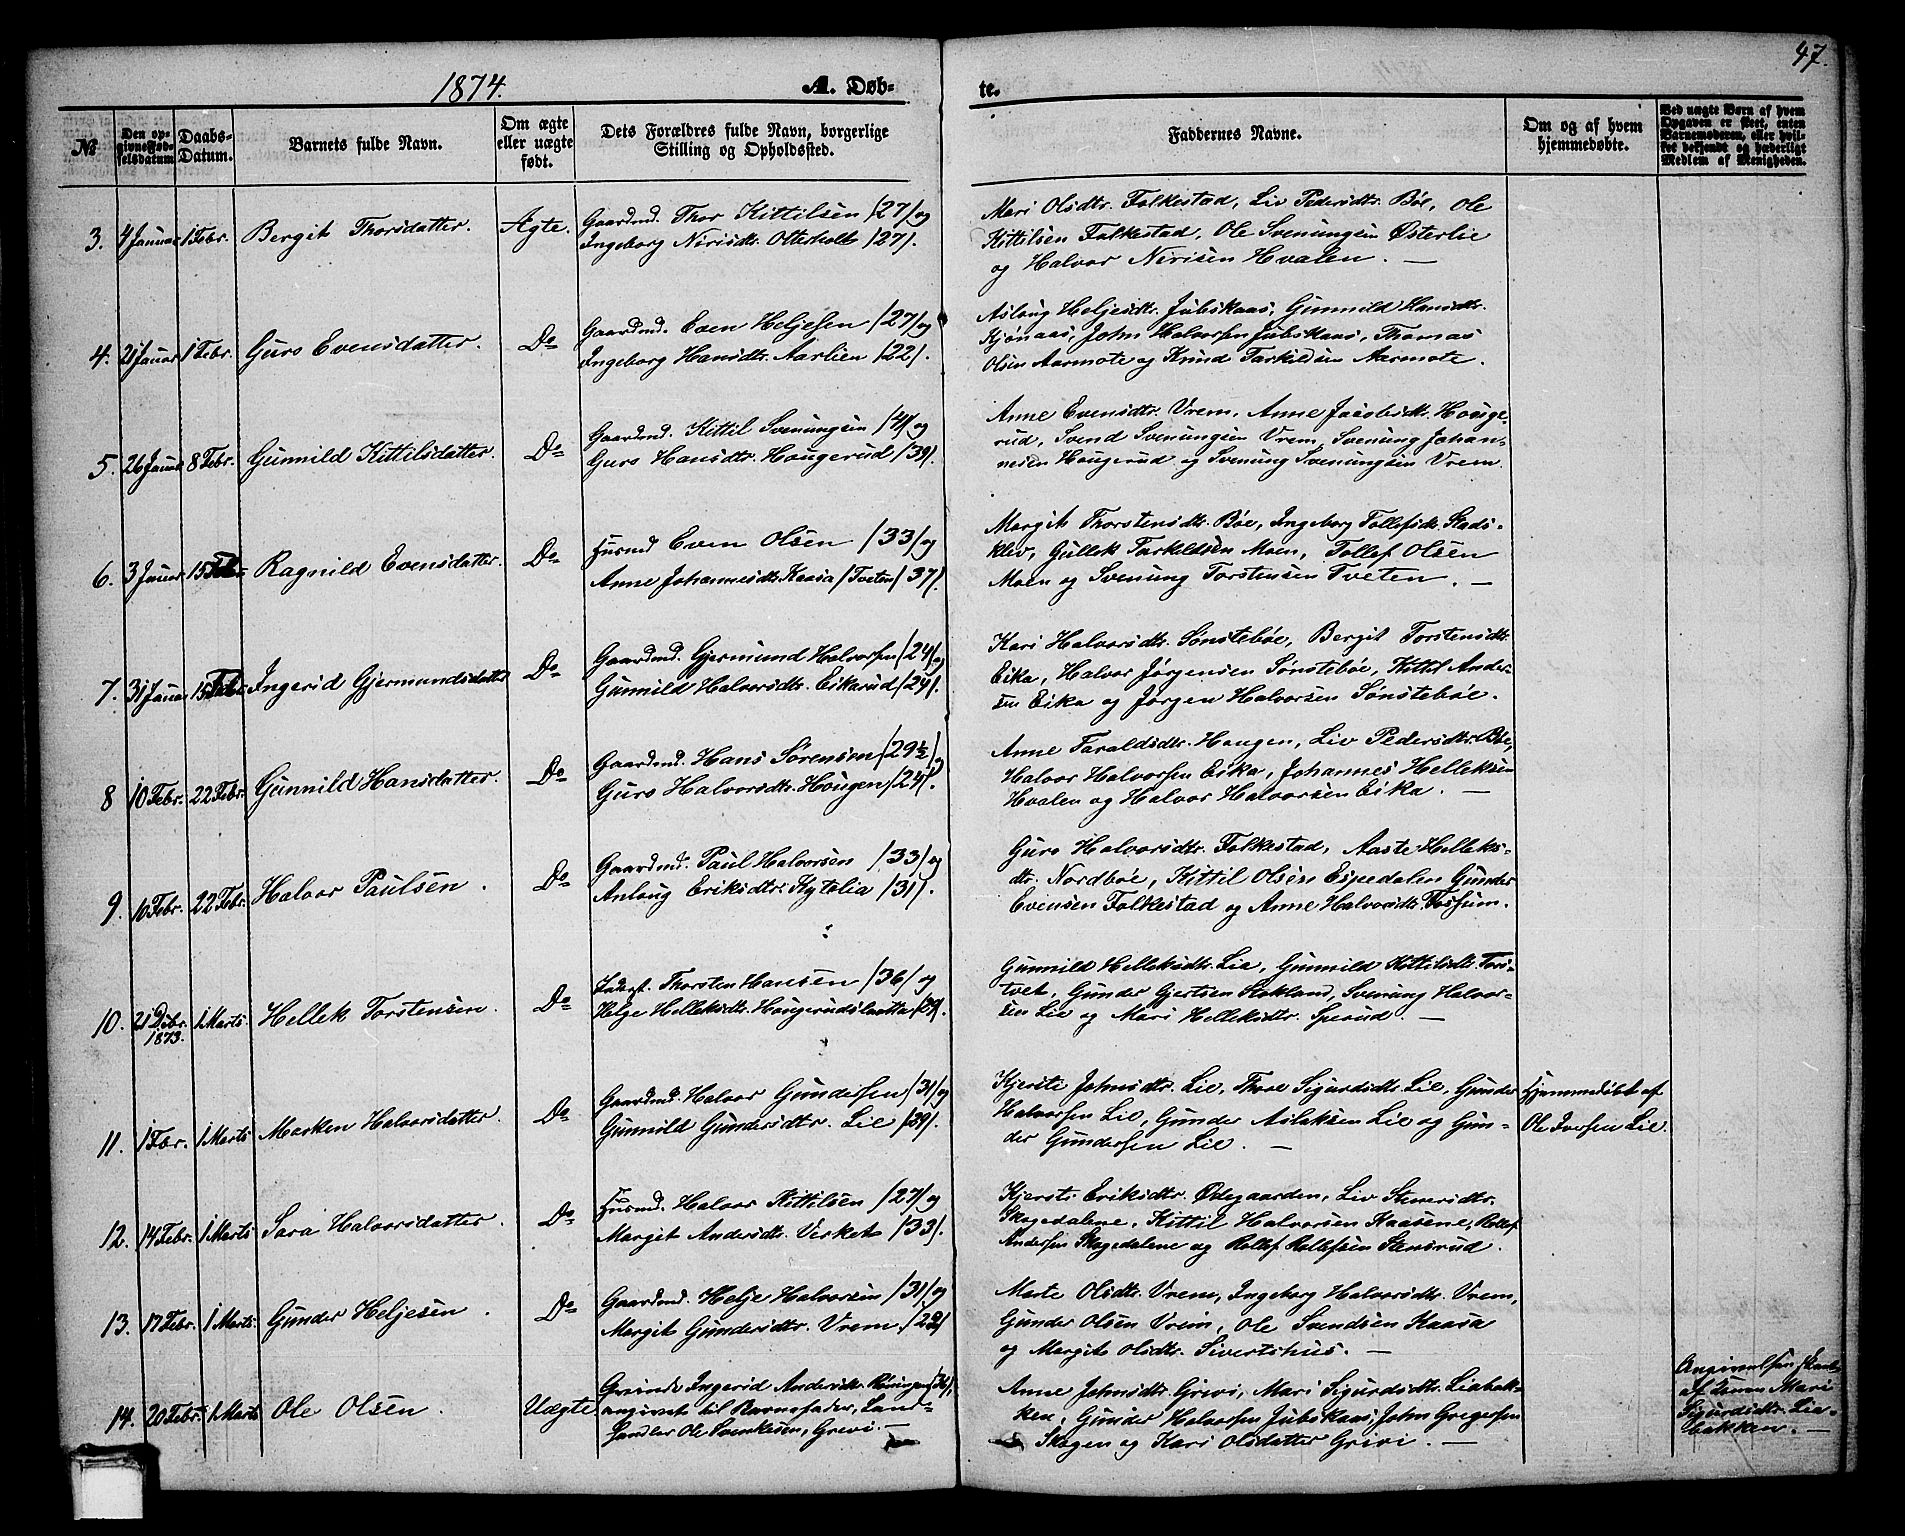 47.
1874.
A. Døb-
te.
№
Den opgivne Fødselsdatum
Daabs-Datum.
Barnets fulde Navn.
Om ægte eller uægte født.
Dets Forældres fulde Navn, borgerlige Stilling og Opholdssted.
Faddernes Navne.
Om og af hvem hjemmedøbte.
Ved uægte Børn af hvem Opgaven er skeet, enten Barnemoderen, eller hvilket bekjendt og hæderligt Medlem af Menigheden.
3. 4 Januar 1 Febr. Bergit Thorsdatter. Ægte. Gaardmd. Thor Kittilsen /27/ og
Ingeborg Nirisdt. Otterholt /27/.
Mari Olsdtr. Folkestad, Liv Pedersdtr. Bøe, Ole
Kittilsen Folkestad, Ole Svenungsen Østerlie
og Halvor Nirisen Hvalen. —
4. 21 Januar 1 Febr. Guro Evensdatter. Do Gaardmd. Even Heljesen /27/ og
Ingeborg Hansdtr. Aarlien /22/.
Aslaug Heljesdtr. Jubskaas, Gunnild Hansdtr.
Kjønaas, John Halvorsen Jubskaas, Thomas
Olsen Aarmote og Knud Tarkildsen Aarmote.
5. 26 Januar 8 Febr. Gunnild Kittilsdatter. Do Gaardmd. Kittil Svenungsen /41/ og
Guro Hansdtr. Hougerud /39/.
Anne Evensdtr. Vrem, Anne Jacobsdt. Houge-
rud, Svend Svenungsen Vrem, Svenung Johan-
nesen Hougerud og Svenung Svenungsen Vrem.
6. 3 Januar 15 Febr. Ragnild Evensdatter. Do Husmd Even Olsen /33/ og
Anne Johannesdt. Kaasa /Tveten/ 37/.
Margit Thorstensdt. Bøe, Ingeborg Tollefsdt. Stads-
klev, Gullek Tarkeldsen Moen, Tollef Olsen
Moen og Svenung Torstensen Tveten. —
7. 31 Januar 15 Febr. Ingerid Gjermundsdatter Do Gaardmd. Gjermund Halvorsen /24/ og
Gunnild Halvorsdtr. Eikarud /24/.
Kari Halvorsdtr. Sønstebøe, Bergit Torstensdt.
Eika, Halvor Jørgensen Sønstebøe, Kittil Ander-
sen Eika og Jørgen Halvorsen Sønstebøe.
8 10 Febr. 22 Febr. Gunnild Hansdatter. Do Gaardmd. Hans Sørensen /29½/ og
Guro Halvorsdtr. Hougen /24/.
Anne Taraldsdtr. Hougen, Liv Pedersdtr. Bøe,
Halvor Halvorsen Eika, Johannes Helleksen
Hvalen og Halvor Halvorsen Eika. —
9. 10 Febr. 22 Febr. Halvor Paulsen. Do Gaardmd. Paul Halvorsen /33/ og
Anlaug Eriksdtr. Hytelia /31/.
Guro Halvorsdtr. Folkestad, Aaste Helleks-
dt. Nordbøe, Kittil Olsen Espedalen Gunder
Evensen Folkestad og Anne Halvorsdt. Fossum.
10. 21 Debr. 1873. 1 Marts Hellek Torstensen. Do Inderst. Thorsten Hansen /36/ og
Helge Helleksdtr. Hougerudslaatta /29/.
Gunnild Helleksdtr. Lie, Gunnild Kittilsdt. Tors-
tvet, Gunder Gjertsen Stokland, Svenung Halvor-
sen Lie og Mari Helleksdtr. Sperud. —
11. 1 Febr. 1 Marts Marken Halvorsdatter. Do Gaardmd. Halvor Gundersen /31/ og
Gunnild Gundersdtr. Lie /39/.
Kjersti Johnsdtr. Lie, Thore Sigurdsdt. Lie, Gunder
Halvorsen Lie, Gunder Aslaksen Lie og Gun-
der Gundersen Lie. —
Hjemmedøbt af
Ole Iversen Lie.
12. 14 Febr. 1 Marts Sara Halvorsdatter. Do Husmd. Halvor Kittilsen /27/ og
Margit Andersdt. Virket /33/.
Kjersti Eriksdtr. Ødegaarden, Liv Stenersdtr.
Skogedalene, Kittil Halvorsen Kaasene, Rollef
Andersen Skogedalene og Rollef Rollefsen Stensrud.
13. 17 Febr. 1 Marts Gunder Heljesen. Do Gaardmd. Helje Halvorsen /31/ og
Margit Gundersdtr. Vrem /22/
Marte Olsdtr. Vrem, Ingeborg Halvorsdtr. Vrem,
Gunder Olsen Vrem, Ole Svendsen Kaasa
og Margit Olsdtr. Sivertshus. —
14. 20 Febr. 1 Marts Ole Olsen. Uægte Ingerid Andersdt.
angivet til Barnefader, Land-
handler Ole Svenkesen, Grivi —
Anne Johnsdtr. Grivi, Mari Sigurdsdtr. Liabak-
ken, Gunder Halvorsen Jubskaas, John Gregersen
Skogen og Kari Olsdatter Grivi. —
Angivelsen skeet
af Mari
Sigurdsdtr. Lia-
bakken. —